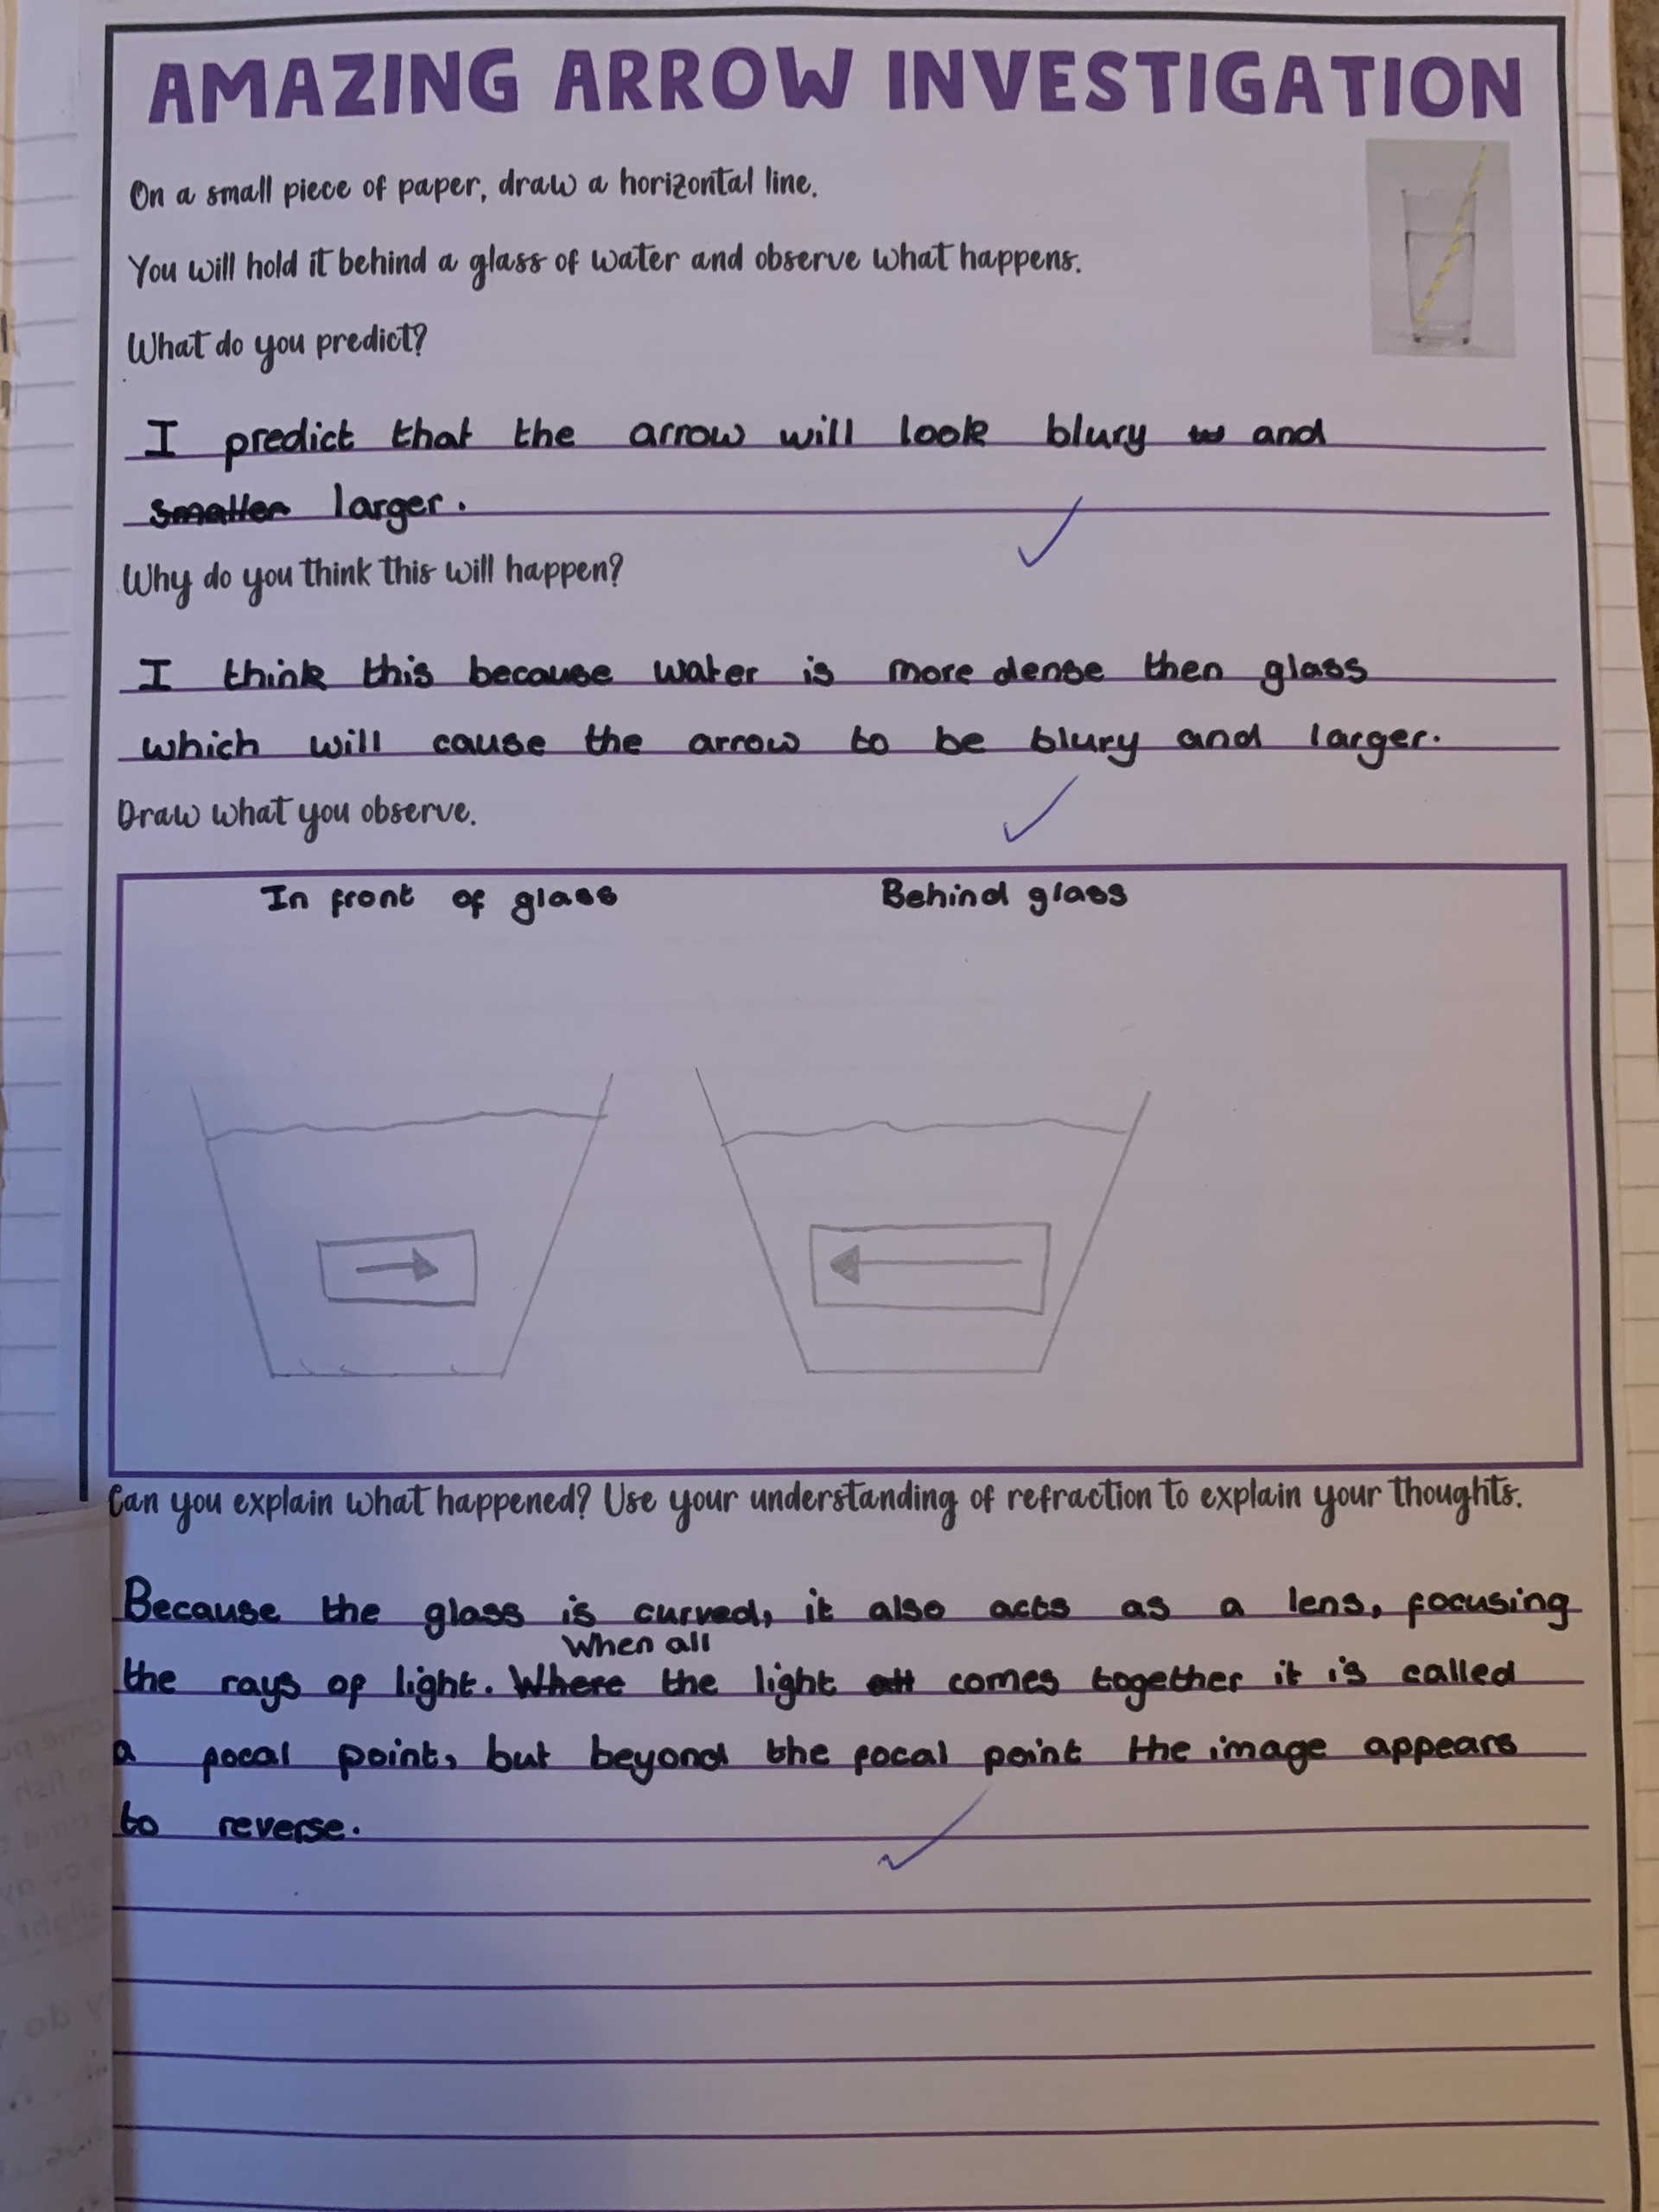 AMAZING ARROW INVESTIGATION
On a small piece of paper, draw a horizontal line.
You will hold it behind a glass of water and observe what happens.
What do you predict?
I predict that the arrow will look blury and
smaller larger.
Why do you think this will happen?
I think this because water is more dense then glass
which will cause the arrow to be blury and larger.
Draw what you observe.
In front of glass
Behind glass
Can you explain what happened? Use your understanding of refraction to explain your thoughts.
Because the glass is curved, it also acts as a lens, focusing
When all
the rays of light. Where the light all comes together it is called
a focal point, but beyond the focal point the image appears
to reverse.